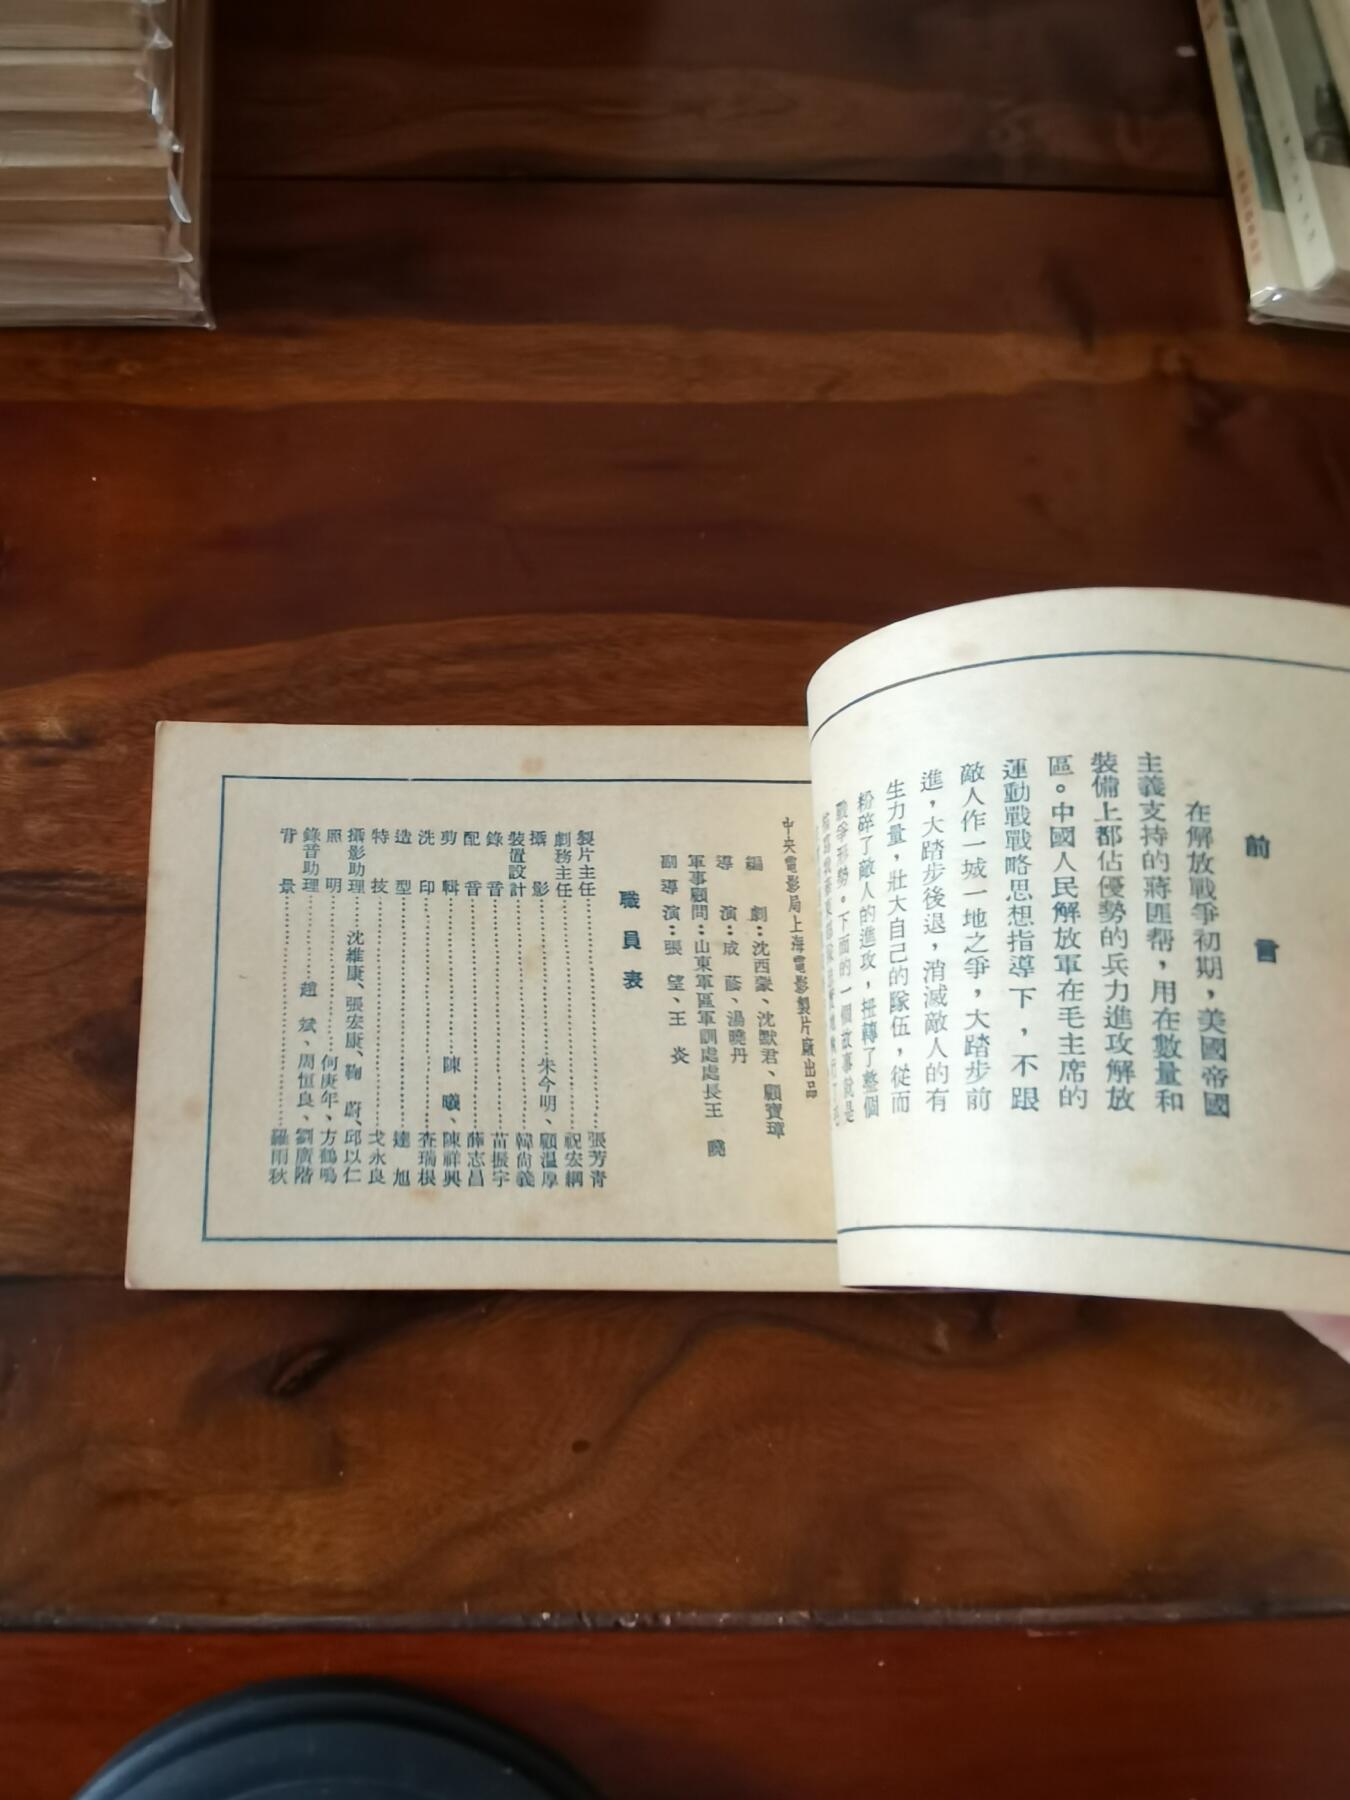 前言
在解放戰爭初期，美國帝國
主義支持的蔣匪幫，用在數量和
裝備上都佔優勢的兵力進攻解放
區。中國人民解放軍在毛主席的
運動戰戰略思想指導下，不跟
敵人作一城一地之爭，大踏步前
進，大踏步後退，消滅敵人的有
生力量，壯大自己的隊伍，從而
粉碎了敵人的進攻，扭轉了整個
戰爭形勢。下面的一個故事就是
中央電影局上海電影製片廠出品
編劇：沈西蒙、沈默君、顧寶璋
導演：成蔭、湯曉丹
軍事顧問：山東軍區軍訓處處長王
副導演：張望、王炎
職員表
製片主任……張芳青
劇務主任……祝宏綱
攝影……朱今明、顧溫厚
裝置設計……韓尙義
錄音……苗振宇
配音……薛志昌
剪輯……陳曦、陳祥興
洗印……查瑞根
造型……達旭
特技……戈永良
攝影助理……沈維康、張宏康、鞠蔚、邱以仁
照明……何庚年、方鶴鳴
錄音助理……趙斌、周恒良、劉廣階
背景……羅雨秋